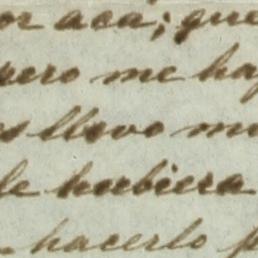 or acá; que
pero me ha
es llevo mu
le hubiera
hacerlo p